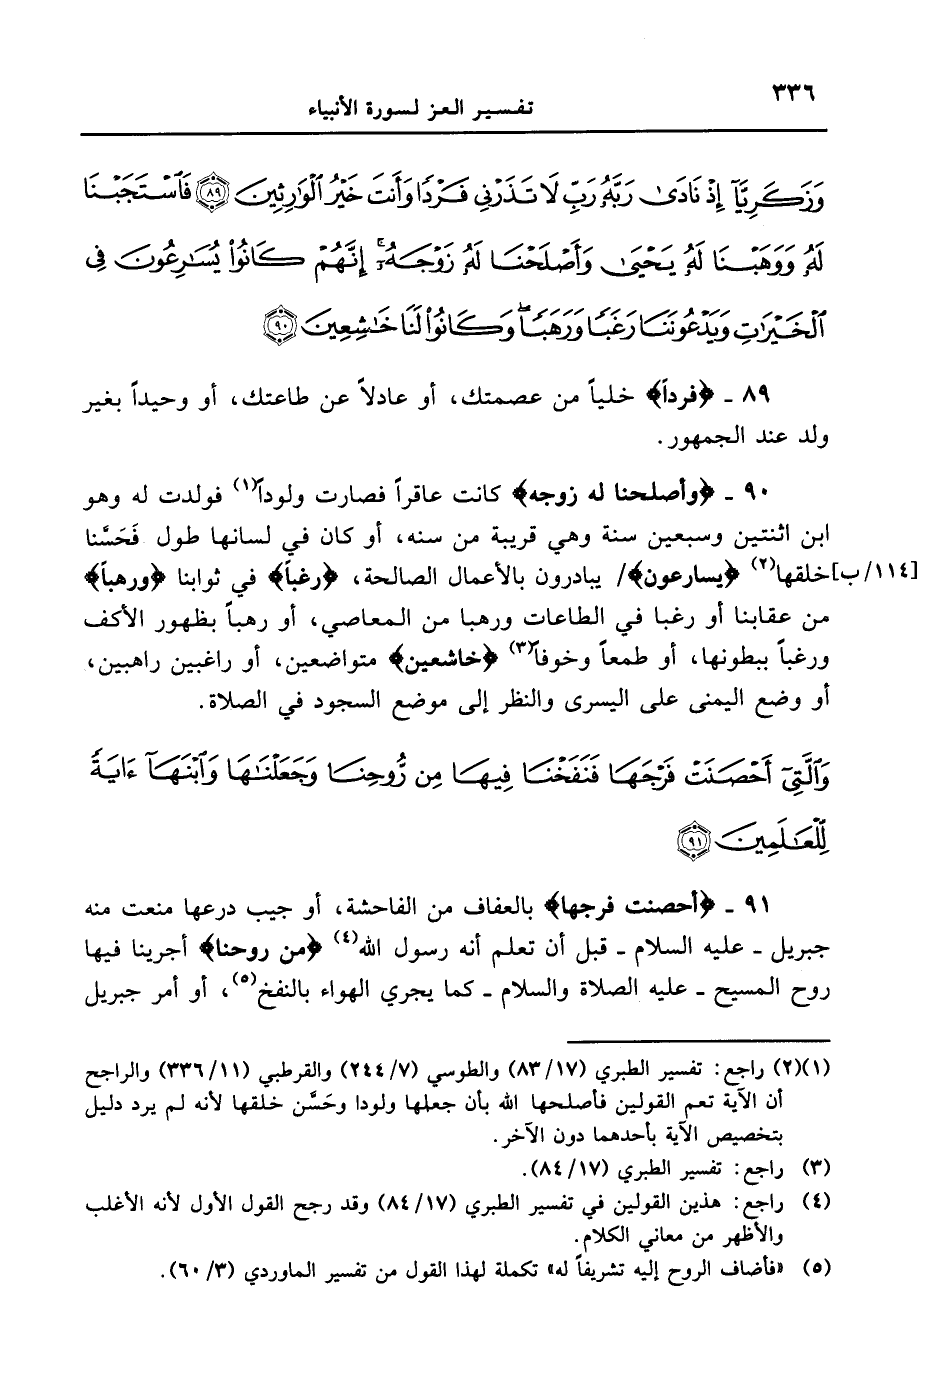 ٣٣٦
تفسير العز لسورة الأنبياء
وَزَكَرِيَّآ إِذْ نَادَىٰ رَبَّهُۥ رَبِّ لَا تَذَرْنِى فَرْدًا وَأَنتَ خَيْرُ ٱلْوَٰرِثِينَ ﴿٨٩﴾ فَٱسْتَجَبْنَا
لَهُۥ وَوَهَبْنَا لَهُۥ يَحْيَىٰ وَأَصْلَحْنَا لَهُۥ زَوْجَهُۥٓ ۚ إِنَّهُمْ كَانُوا۟ يُسَٰرِعُونَ فِى
ٱلْخَيْرَٰتِ وَيَدْعُونَنَا رَغَبًا وَرَهَبًا ۖ وَكَانُوا۟ لَنَا خَٰشِعِينَ ﴿٩٠﴾
٨٩ - ﴿فرداً﴾ خلياً من عصمتك، أو عادلاً عن طاعتك، أو وحيداً بغير
ولد عند الجمهور.
٩٠ - ﴿وأصلحنا له زوجه﴾ كانت عاقراً فصارت ولوداً(١) فولدت له وهو
ابن اثنتين وسبعين سنة وهي قريبة من سنه، أو كان في لسانها طول فَحَسَّنا
[١١٤/ب] خلقها(٢) ﴿يسارعون﴾/ يبادرون بالأعمال الصالحة، ﴿رغباً﴾ في ثوابنا ﴿ورهباً﴾
من عقابنا أو رغبا في الطاعات ورهبا من المعاصي، أو رهباً بظهور الأكف
ورغباً ببطونها، أو طمعاً وخوفاً(٣) ﴿خاشعين﴾ متواضعين، أو راغبين راهبين،
أو وضع اليمنى على اليسرى والنظر إلى موضع السجود في الصلاة.
وَٱلَّتِىٓ أَحْصَنَتْ فَرْجَهَا فَنَفَخْنَا فِيهَا مِن رُّوحِنَا وَجَعَلْنَٰهَا وَٱبْنَهَآ ءَايَةً
لِّلْعَٰلَمِينَ ﴿٩١﴾
٩١ - ﴿أحصنت فرجها﴾ بالعفاف من الفاحشة، أو جيب درعها منعت منه
جبريل - عليه السلام - قبل أن تعلم أنه رسول الله(٤) ﴿من روحنا﴾ أجرينا فيها
روح المسيح - عليه الصلاة والسلام - كما يجري الهواء بالنفخ(٥)، أو أمر جبريل
(١)(٢) راجع: تفسير الطبري (٨٣/١٧) والطوسي (٢٤٤/٧) والقرطبي (٣٣٦/١١) والراجح
أن الآية تعم القولين فأصلحها الله بأن جعلها ولودا وحَسَّن خلقها لأنه لم يرد دليل
بتخصيص الآية بأحدهما دون الآخر.
(٣) راجع: تفسير الطبري (٨٤/١٧).
(٤) راجع: هذين القولين في تفسير الطبري (٨٤/١٧) وقد رجح القول الأول لأنه الأغلب
والأظهر من معاني الكلام.
(٥) «فأضاف الروح إليه تشريفاً له» تكملة لهذا القول من تفسير الماوردي (٦٠/٣).